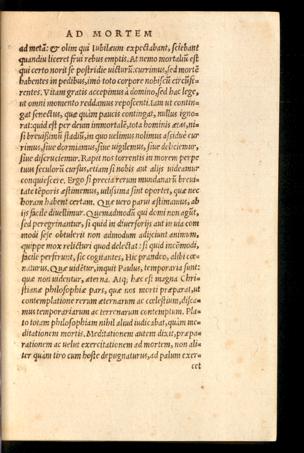 AD MORTEM
ad metã: & olim qui Iubilæum expectabant, sciebant
quandiu liceret frui rebus emptis. At nemo mortaliũ est
qui certo norit se postridie uicturũ: currimus, sed mortẽ
habentes in pedibus, imò toto corpore nobiscũ circũfe-
rentes. Vitam gratis accepimus à domino, sed hac lege,
ut omni momento reddamus reposcenti. Iam ut contin-
gat senectus, quæ quàm paucis contingat, nullus igno-
rat: quid est per deum immortalẽ, tota hominis ætas, ni-
si breuißimũ stadiũ, in quo uelimus nolimus aßiduè cur
rimus, siue dormiamus, siue uigilemus, siue deliciemur,
siue discruciemur. Rapit nos torrentis in morem perpe
tuus seculorũ cursus, etiam si nobis aut alijs uideamur
conquiescere. Ergo si precia rerum mundanarũ breui-
tate tẽporis æstimemus, uilißima sint oportet, quæ nec
horam habent certam. Quæ uero parui æstimamus, ab
ijs facile diuellimur. Quemadmodũ qui domi non agũt,
sed peregrinantur, si quid in diuersorijs aut in uia com
modi sese obtulerit non admodum adijciunt animum,
quippe mox relicturi quod delectat: si quid incõmodi,
facile perferunt, sic cogitantes, Hic prandeo, alibi cœ-
naturus. Quæ uidẽtur, inquit Paulus, temporaria sunt:
quæ non uidentur, æterna. Atq; hæc est magna Chri-
stianæ philosophiæ pars, quæ nos morti præparat, ut
contemplatione rerum æternarum ac cœlestium, disca-
mus temporariarum ac terrenarum contemptum. Pla-
to totam philosophiam nihil aliud iudicabat, quàm me-
ditationem mortis. Meditationem autem dixit, præpa-
rationem ac uelut exercitationem ad mortem, non ali-
ter quàm tiro cum hoste depugnaturus, ad palum exer-
cet